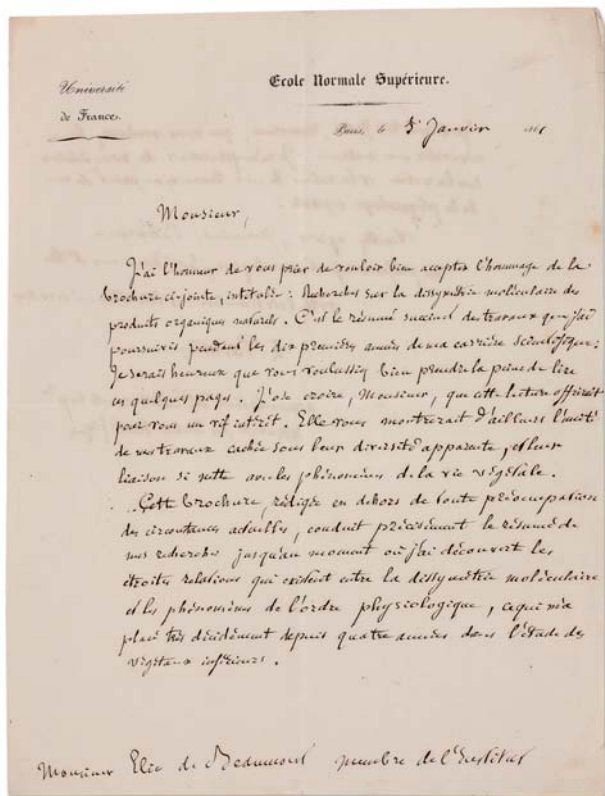 Université
de France.
Ecole Normale Supérieure.
Paris, le 5 Janvier 186
Monsieur,
J'ai l'honneur de vous prier de vouloir bien accepter l'hommage de la
brochure ci-jointe, intitulée : Recherches sur la dissymétrie moléculaire des
produits organiques naturels. C'est le résumé succinct des travaux que j'ai
poursuivis pendant les dix premières années de ma carrière scientifique.
Je serais heureux que vous voulussiez bien prendre la peine de lire
ces quelques pages. J'ose croire, Monsieur, que cette lecture offrirait
pour vous un vif intérêt. Elle vous montrerait d'ailleurs l'unité
de mes travaux cachée sous leur diversité apparente, et leur
liaison si nette avec les phénomènes de la vie végétale.
Cette brochure, rédigée en dehors de toute préoccupation
des circonstances actuelles, conduit précisément le résumé de
mes recherches jusqu'au moment où j'ai découvert les
étroites relations qui existent entre la dissymétrie moléculaire
et les phénomènes de l'ordre physiologique, ce qui m'a
placé très décidément depuis quatre années dans l'étude des
végétaux inférieurs.
Monsieur Elie de Beaumont membre de l'Institut